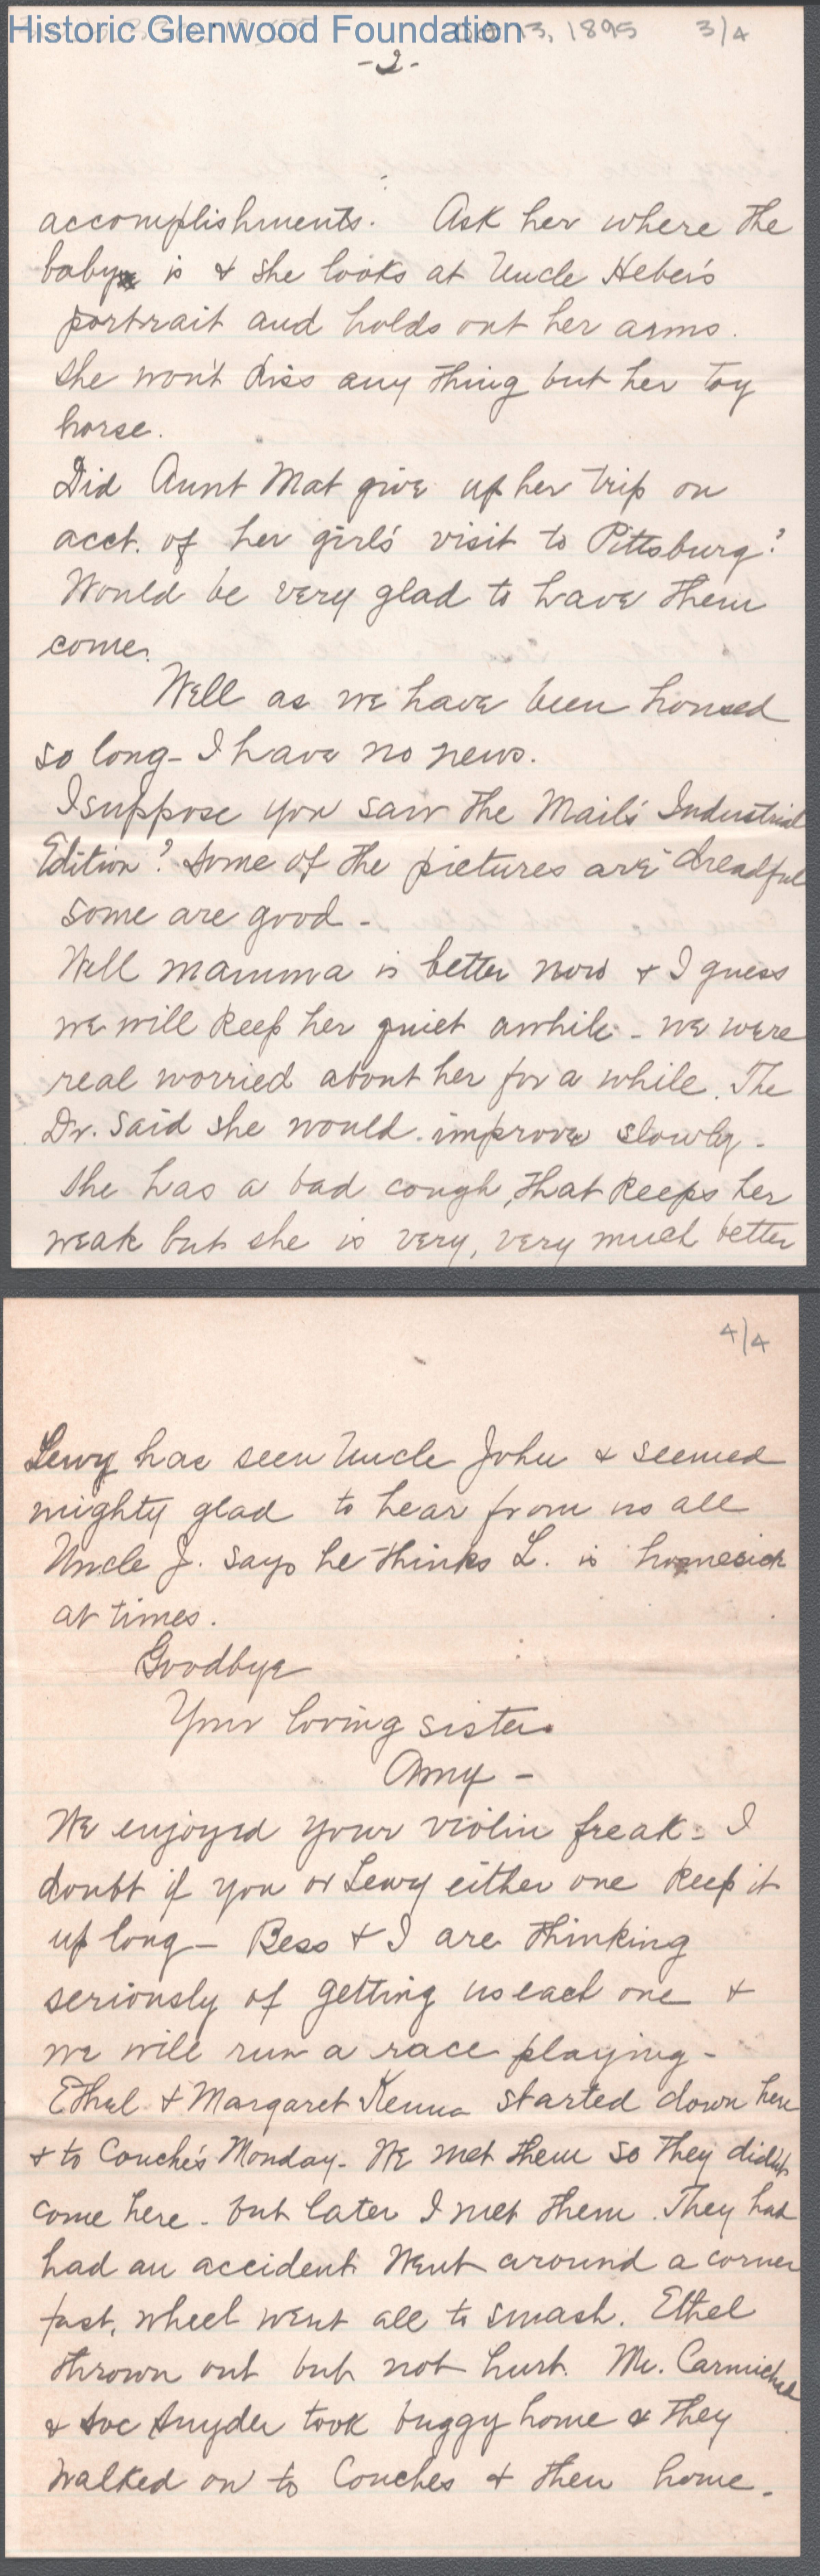 Historic Glenwood Foundation
13, 1895 3/4
-2-
accomplishments. Ask her where the
baby is & she looks at Uncle Heber's
portrait and holds out her arms.
She won't kiss any thing but her toy
horse.
Did Aunt Mat give up her trip on
acct. of her girl's visit to Pittsburg?
Would be very glad to have them
come.
Well as we have been housed
so long - I have no news.
I suppose you saw the Mail's Industrial
Edition? Some of the pictures are dreadful
some are good -
Well mamma is better now & I guess
we will keep her quiet awhile - we were
real worried about her for a while. The
Dr. said she would improve slowly -
She has a bad cough, that keeps her
weak but she is very, very much better
4/4
Lewy has seen Uncle John & seemed
mighty glad to hear from us all
Uncle J. says he thinks L. is homesick
at times.
Goodbye
Your loving sister
Amy -
We enjoyed your violin freak - I
doubt if you or Lewy either one keep it
up long - Bess & I are thinking
seriously of getting us each one &
we will run a race playing -
Ethel & Margaret Kenna started down here
& to Couch's Monday - We met them so they didn't
come here - but later I met them. They had
had an accident. Went around a corner
fast, wheel went all to smash. Ethel
thrown out but not hurt. Mr. Carmichael
& Snyder took buggy home & they
walked on to Couches & then home -